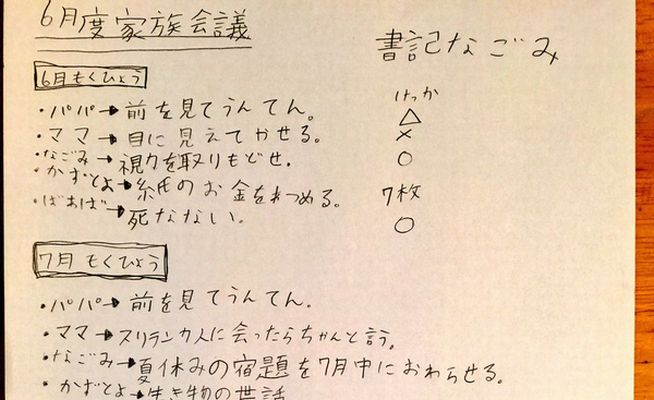 6月度家族会議
書記なごみ
6月もくひょう
けっか
・パパ→前を見てうんてん。 △
・ママ→目に見えてやせる。 ×
・なごみ→視力を取りもどせ。 ○
・かずとよ→紙のお金をつめる。 7枚
・ばあば→死なない。 ○
7月もくひょう
・パパ→前を見てうんてん。
・ママ→スリランカ人に会ったらちゃんと言う。
・なごみ→夏休みの宿題を7月中におわらせる。
・かずとよ→生き物の世話